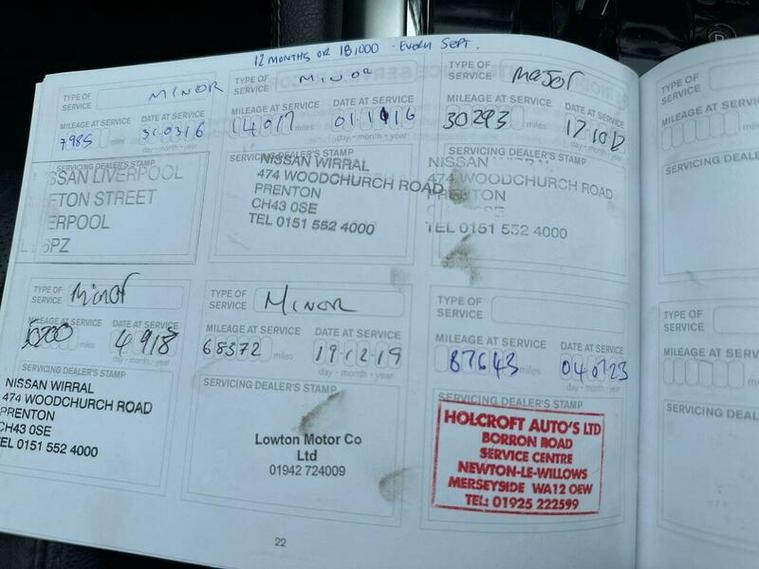 12 MONTHS OR 18,000 - EVERY SEPT.
TYPE OF SERVICE MINOR
MILEAGE AT SERVICE DATE AT SERVICE
7985 miles 31 03 16
day - month - year
SERVICING DEALER'S STAMP
SSAN LIVERPOOL
FTON STREET
ERPOOL
TYPE OF SERVICE MINOR
MILEAGE AT SERVICE DATE AT SERVICE
14017 miles
day - month - year
SERVICING DEALER'S STAMP
NISSAN WIRRAL
474 WOODCHURCH ROAD
PRENTON
CH43 0SE
TEL 0151 552 4000
TYPE OF SERVICE major
MILEAGE AT SERVICE DATE AT SERVICE
30293 miles
day - month - year
SERVICING DEALER'S STAMP
NISSAN
474 WOODCHURCH ROAD
TEL 0151 552 4000
TYPE OF SERVICE Minor
MILEAGE AT SERVICE DATE AT SERVICE
miles 4 9 18
day - month - year
SERVICING DEALER'S STAMP
NISSAN WIRRAL
474 WOODCHURCH ROAD
PRENTON
CH43 0SE
TEL 0151 552 4000
TYPE OF SERVICE MINOR
MILEAGE AT SERVICE DATE AT SERVICE
68372 miles 19 12 19
day - month - year
SERVICING DEALER'S STAMP
Lowton Motor Co
Ltd
01942 724009
TYPE OF SERVICE
MILEAGE AT SERVICE DATE AT SERVICE
87643 miles
day - month - year
SERVICING DEALER'S STAMP
HOLCROFT AUTO'S LTD
BORRON ROAD
SERVICE CENTRE
NEWTON-LE-WILLOWS
MERSEYSIDE WA12 OEW
TEL: 01925 222599
22
TYPE OF SERVICE
MILEAGE AT SERVICE
miles
SERVICING DEALE
TYPE OF SERVICE
MILEAGE AT SERVICE
miles
SERVICING DEALE